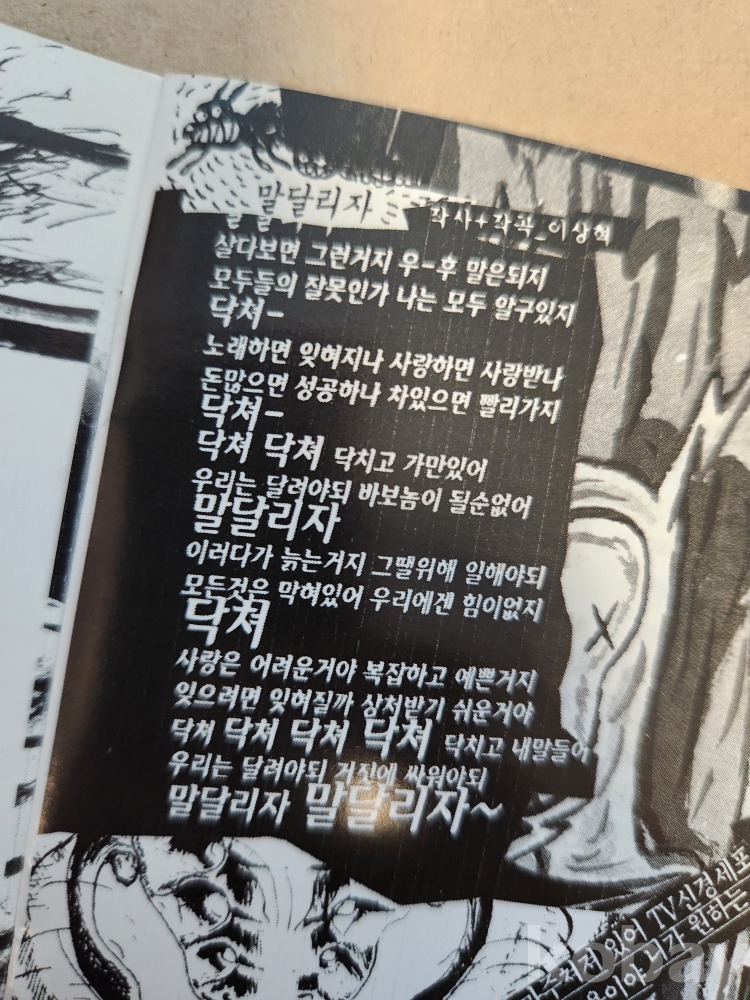 말달리자
작사+작곡_이상혁
살다보면 그런거지 우-후 말은되지
모두들의 잘못인가 나는 모두 알구있지
닥쳐-
노래하면 잊혀지나 사랑하면 사랑받나
돈많으면 성공하나 차있으면 빨리가지
닥쳐-
닥쳐 닥쳐 닥치고 가만있어
우리는 달려야되 바보놈이 될순없어
말달리자
이러다가 늙는거지 그땔위해 일해야되
모든것은 막혀있어 우리에겐 힘이없지
닥쳐
사랑은 어려운거야 복잡하고 예쁜거지
잊으려면 잊혀질까 상처받기 쉬운거야
닥쳐 닥쳐 닥쳐 닥쳐 닥치고 내말들어
우리는 달려야되 거짓에 싸워야되
말달리자 말달리자~
있어 TV신경세포
니가 원하는
kobay